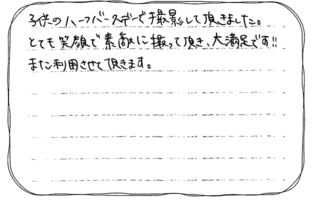 子供のハーフバースデーで撮影して頂きました。
とても笑顔で素敵に撮って頂き、大満足です!!
また利用させて頂きます。